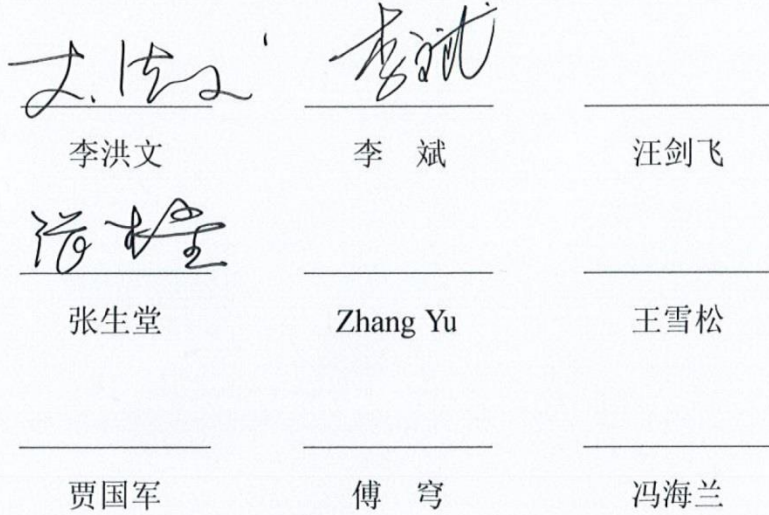 李斌
李洪文 李 斌 汪剑飞
张生堂 Zhang Yu 王雪松
贾国军 傅 穹 冯海兰